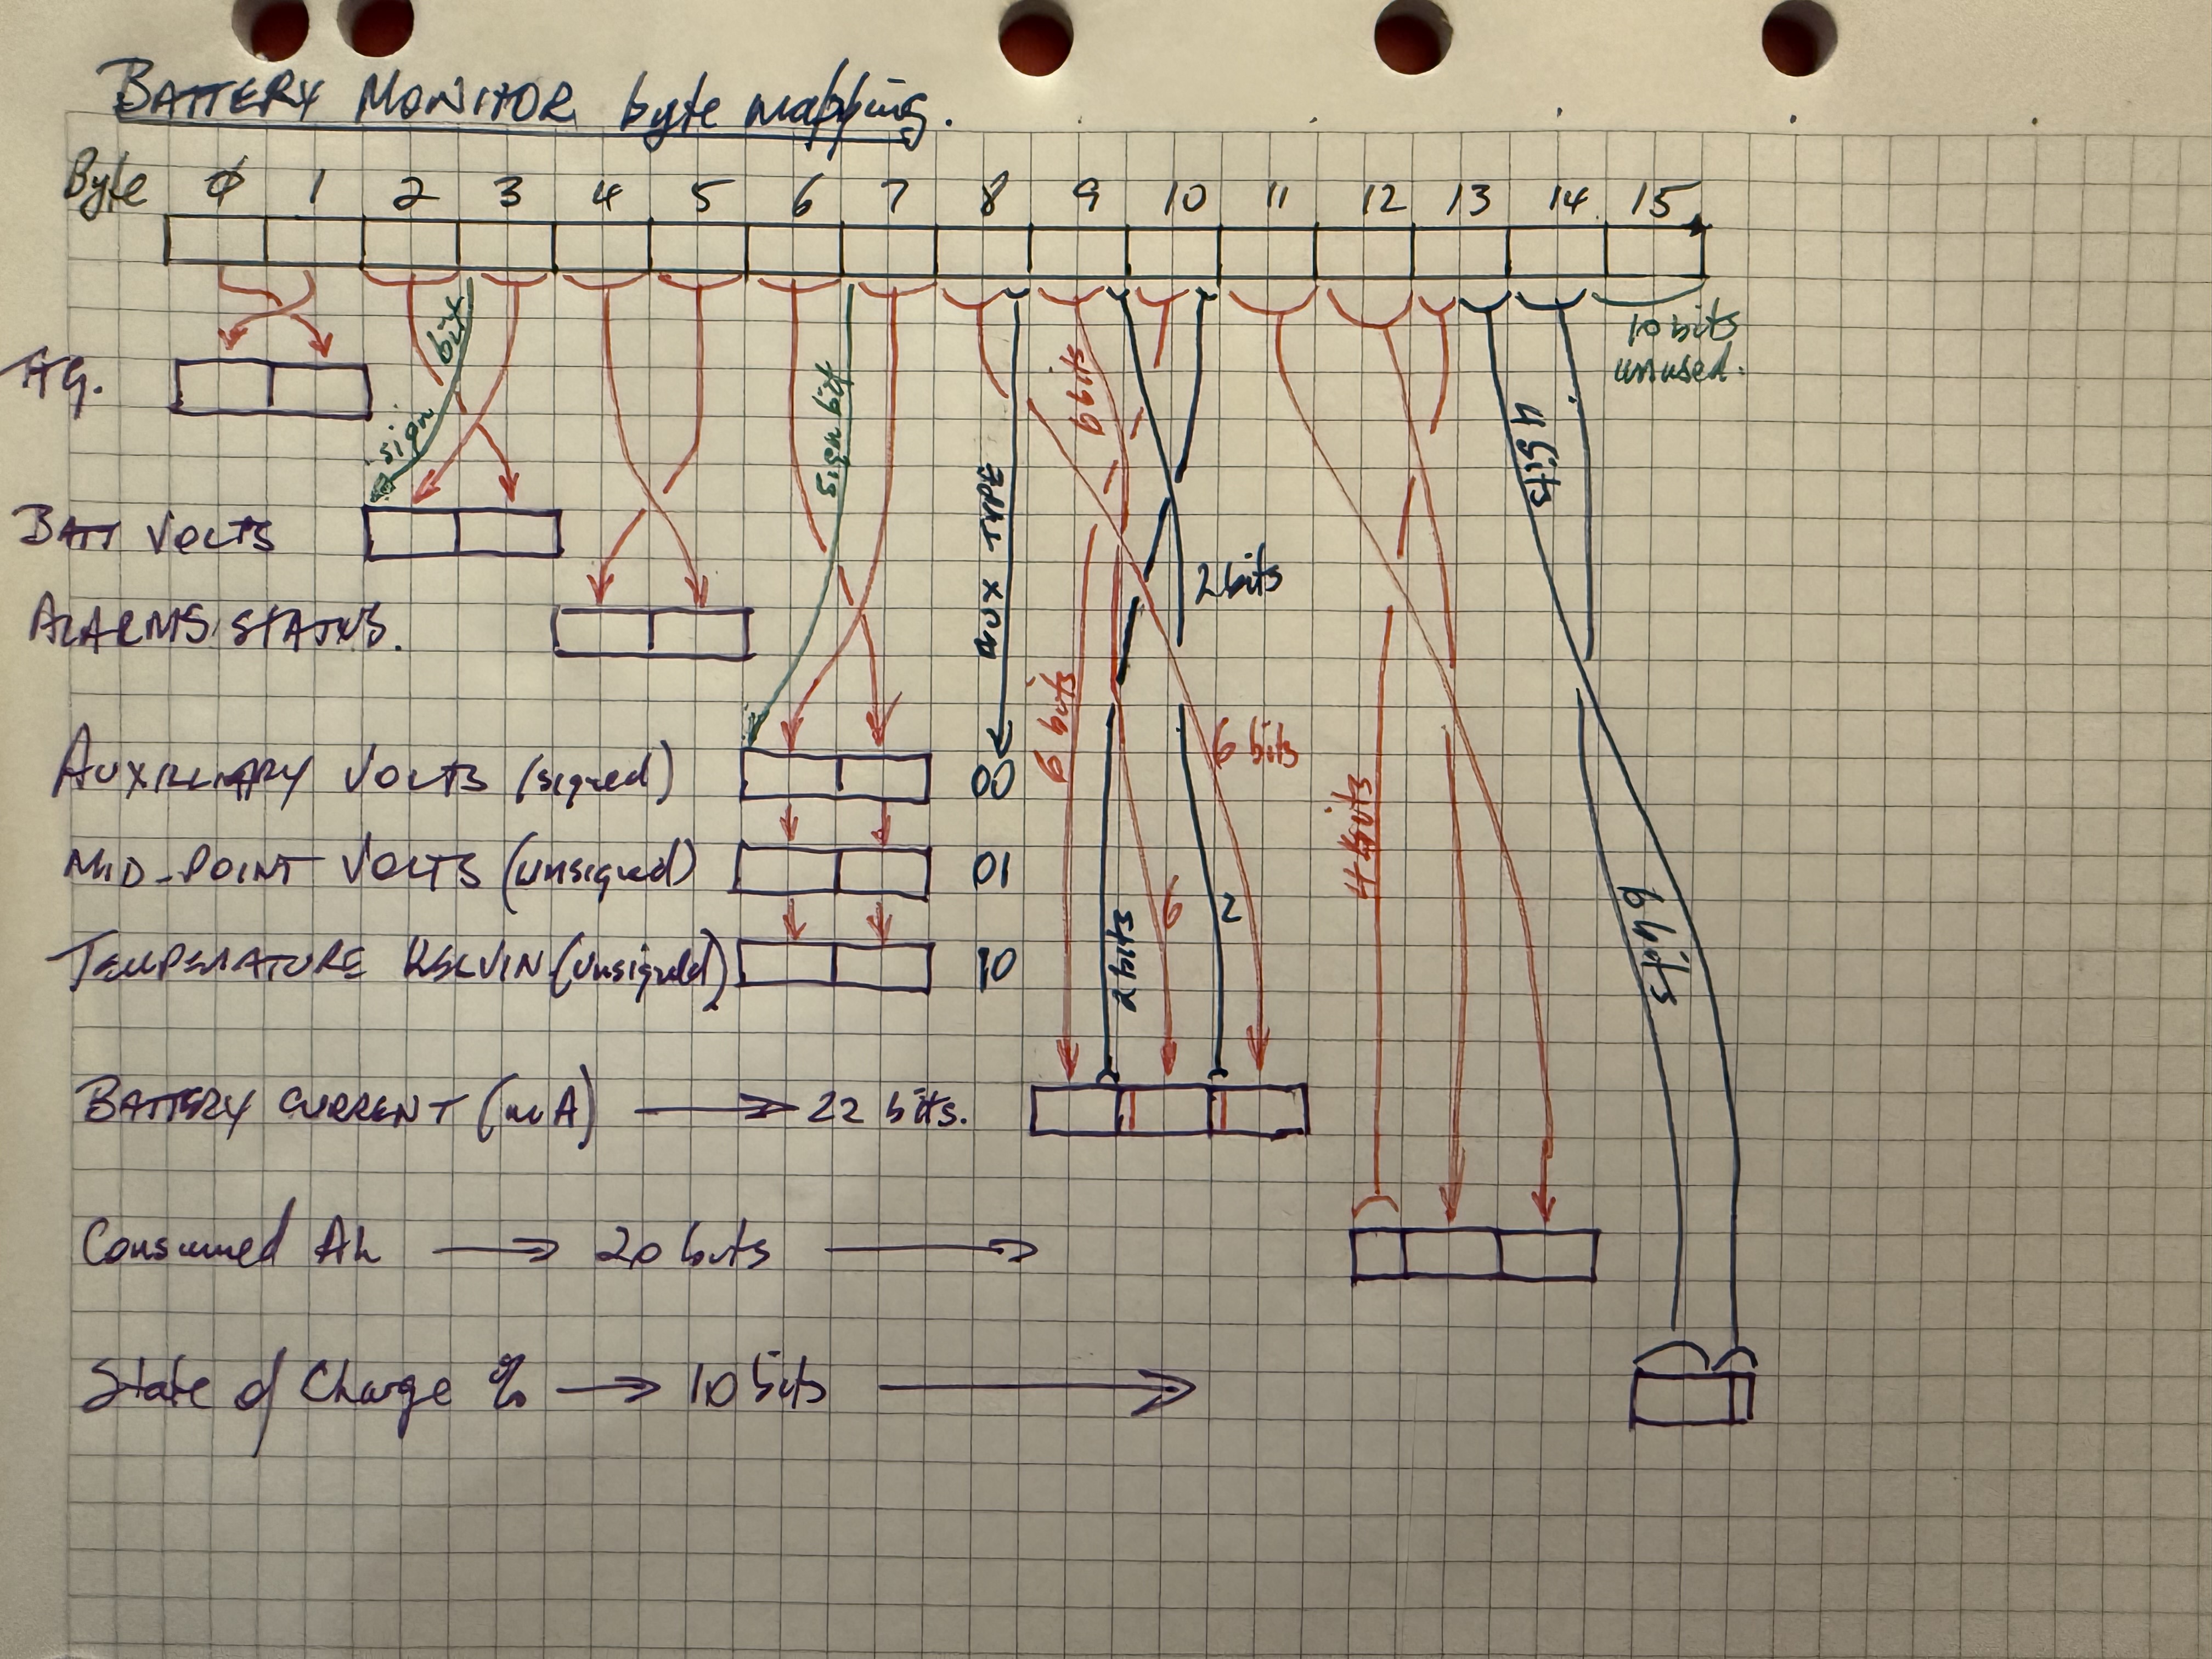 BATTERY MONITOR byte mapping.
Byte 0 1 2 3 4 5 6 7 8 9 10 11 12 13 14 15
10 bits
unused.
TTG.
sign bit
sign bit
AUX TYPE
6 bits
4 bits
BATT VOLTS
2 bits
ALARMS STATUS.
6 bits
6 bits
AUXILIARY VOLTS (signed) 00
4 bits
MID-POINT VOLTS (unsigned) 01
6
2
6 bits
2 bits
TEMPERATURE KELVIN (unsigned) 10
BATTERY CURRENT (mA) → 22 bits.
Consumed Ah → 20 bits →
State of Charge % → 10 bits →